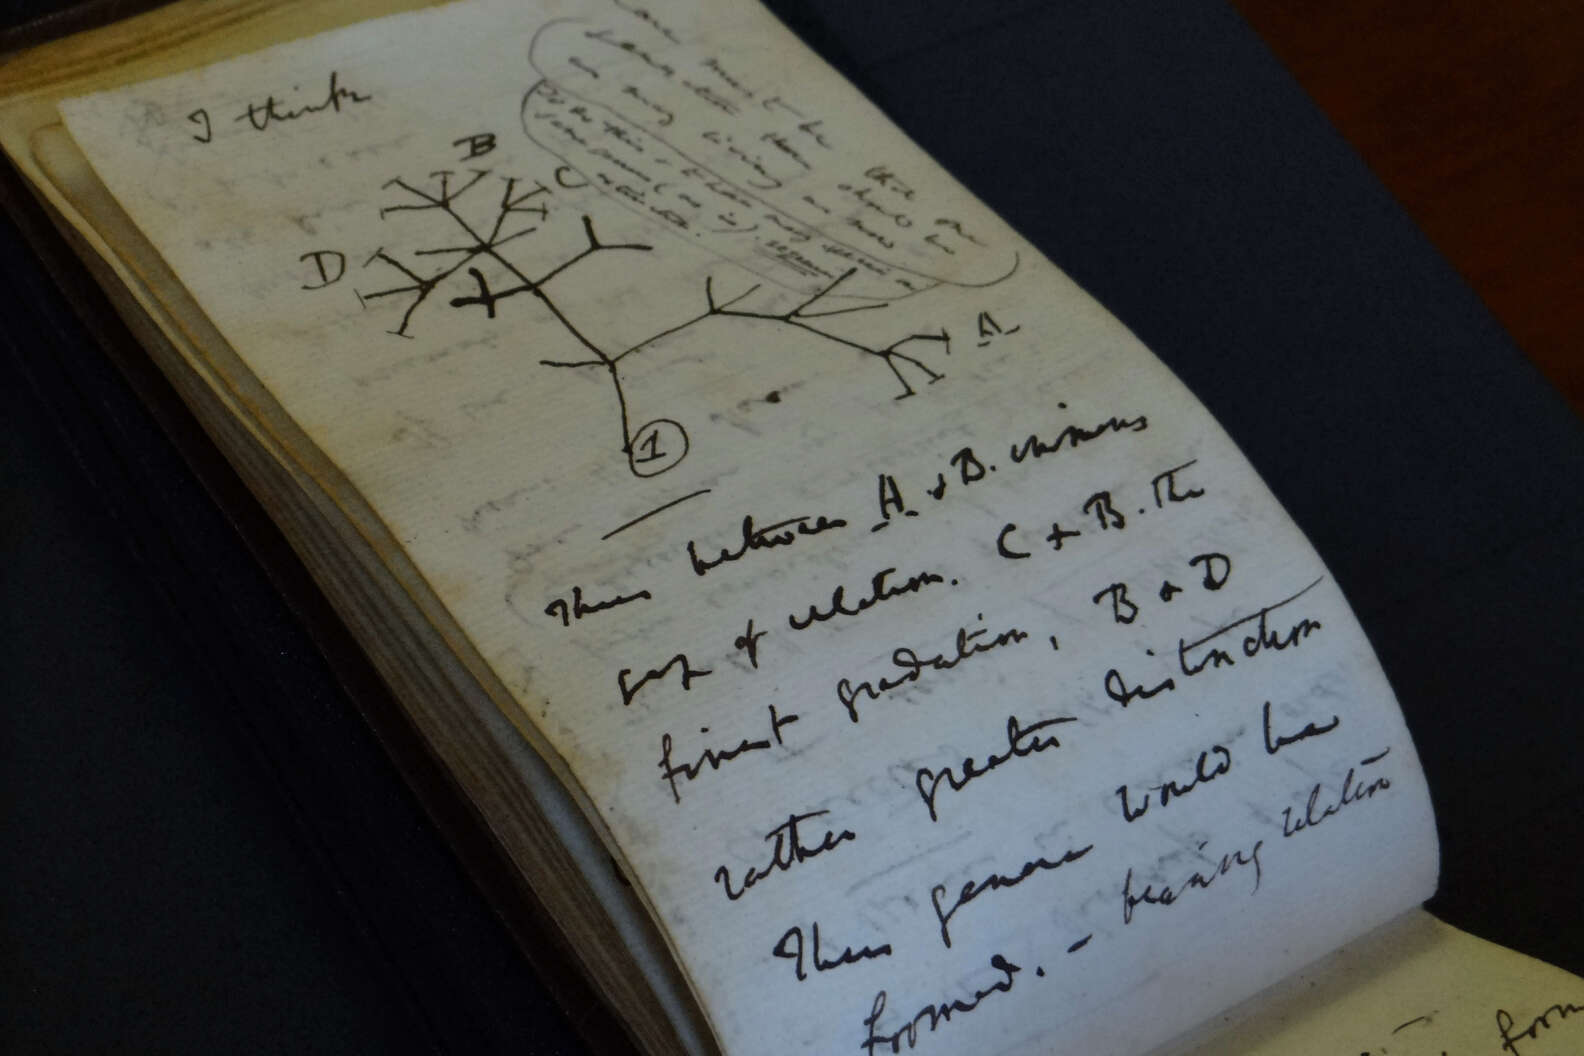 I think
case must be that one
generation then should be
as many living as now
To do this & to have many species in
same genus (as is) requires
extinction.
B
C
D
A
1
Thus between A & B. immens
gap of relation. C & B. The
finest gradation, B & D
rather greater distinction
Thus genera would be
formed. — bearing relation
form